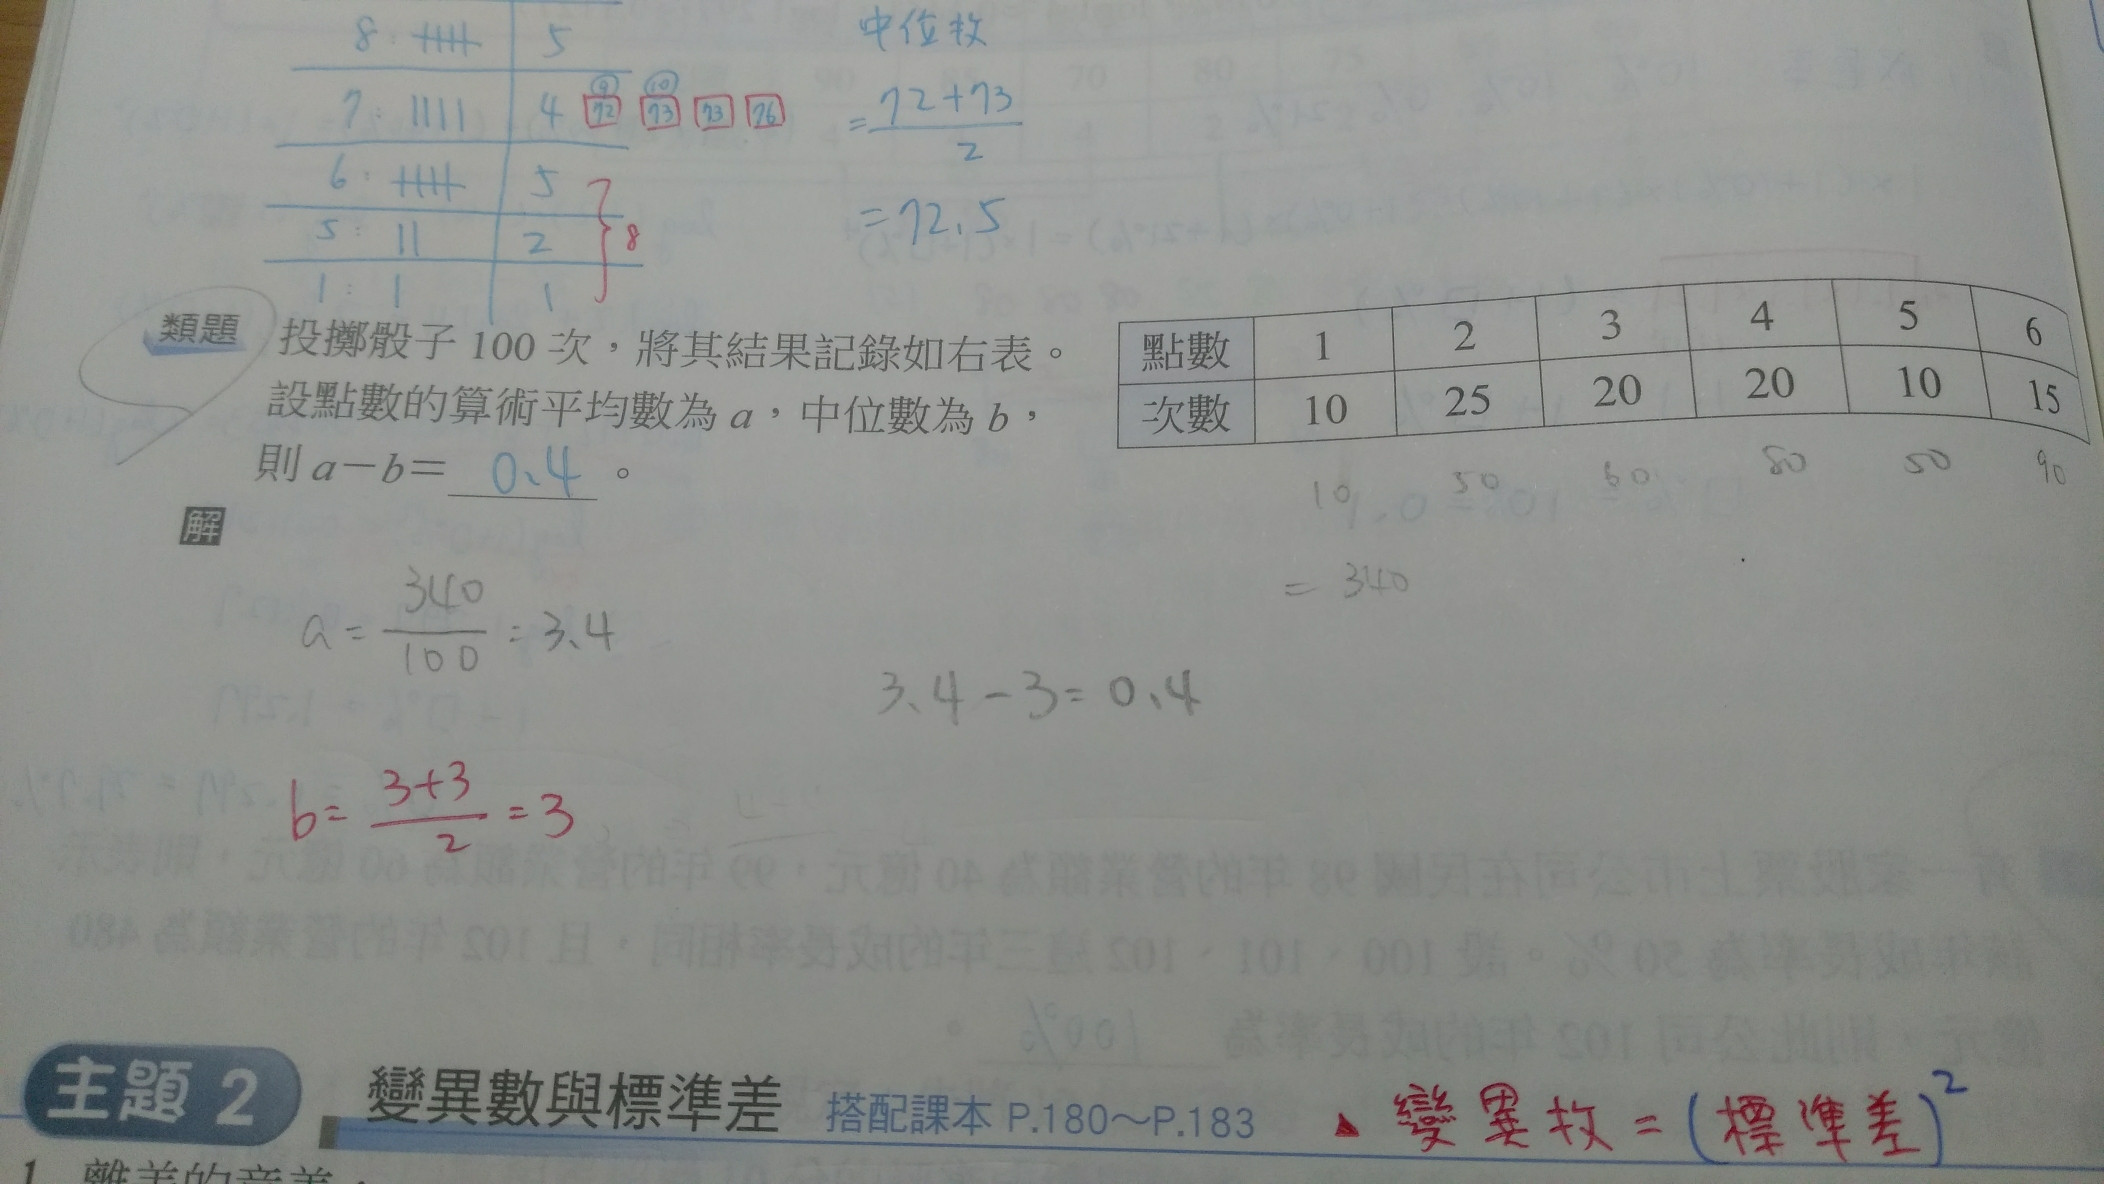 8: 5
中位數
7: 4 ⑨ 72 ⑩ 73 73 76
= 72+73 / 2
6: 5
= 72.5
5: 2 8
1: 1
類題 投擲骰子 100 次，將其結果記錄如右表。
設點數的算術平均數為 a，中位數為 b，
則 a－b＝ 0.4 。
點數 1 2 3 4 5 6
次數 10 25 20 20 10 15
10 50 60 80 50 90
= 340
解
a = 340 / 100 = 3.4
3.4 - 3 = 0.4
b = 3+3 / 2 = 3
主題 2 變異數與標準差 搭配課本 P.180～P.183 ▲ 變異數 = (標準差)²
1. 離差的意義：